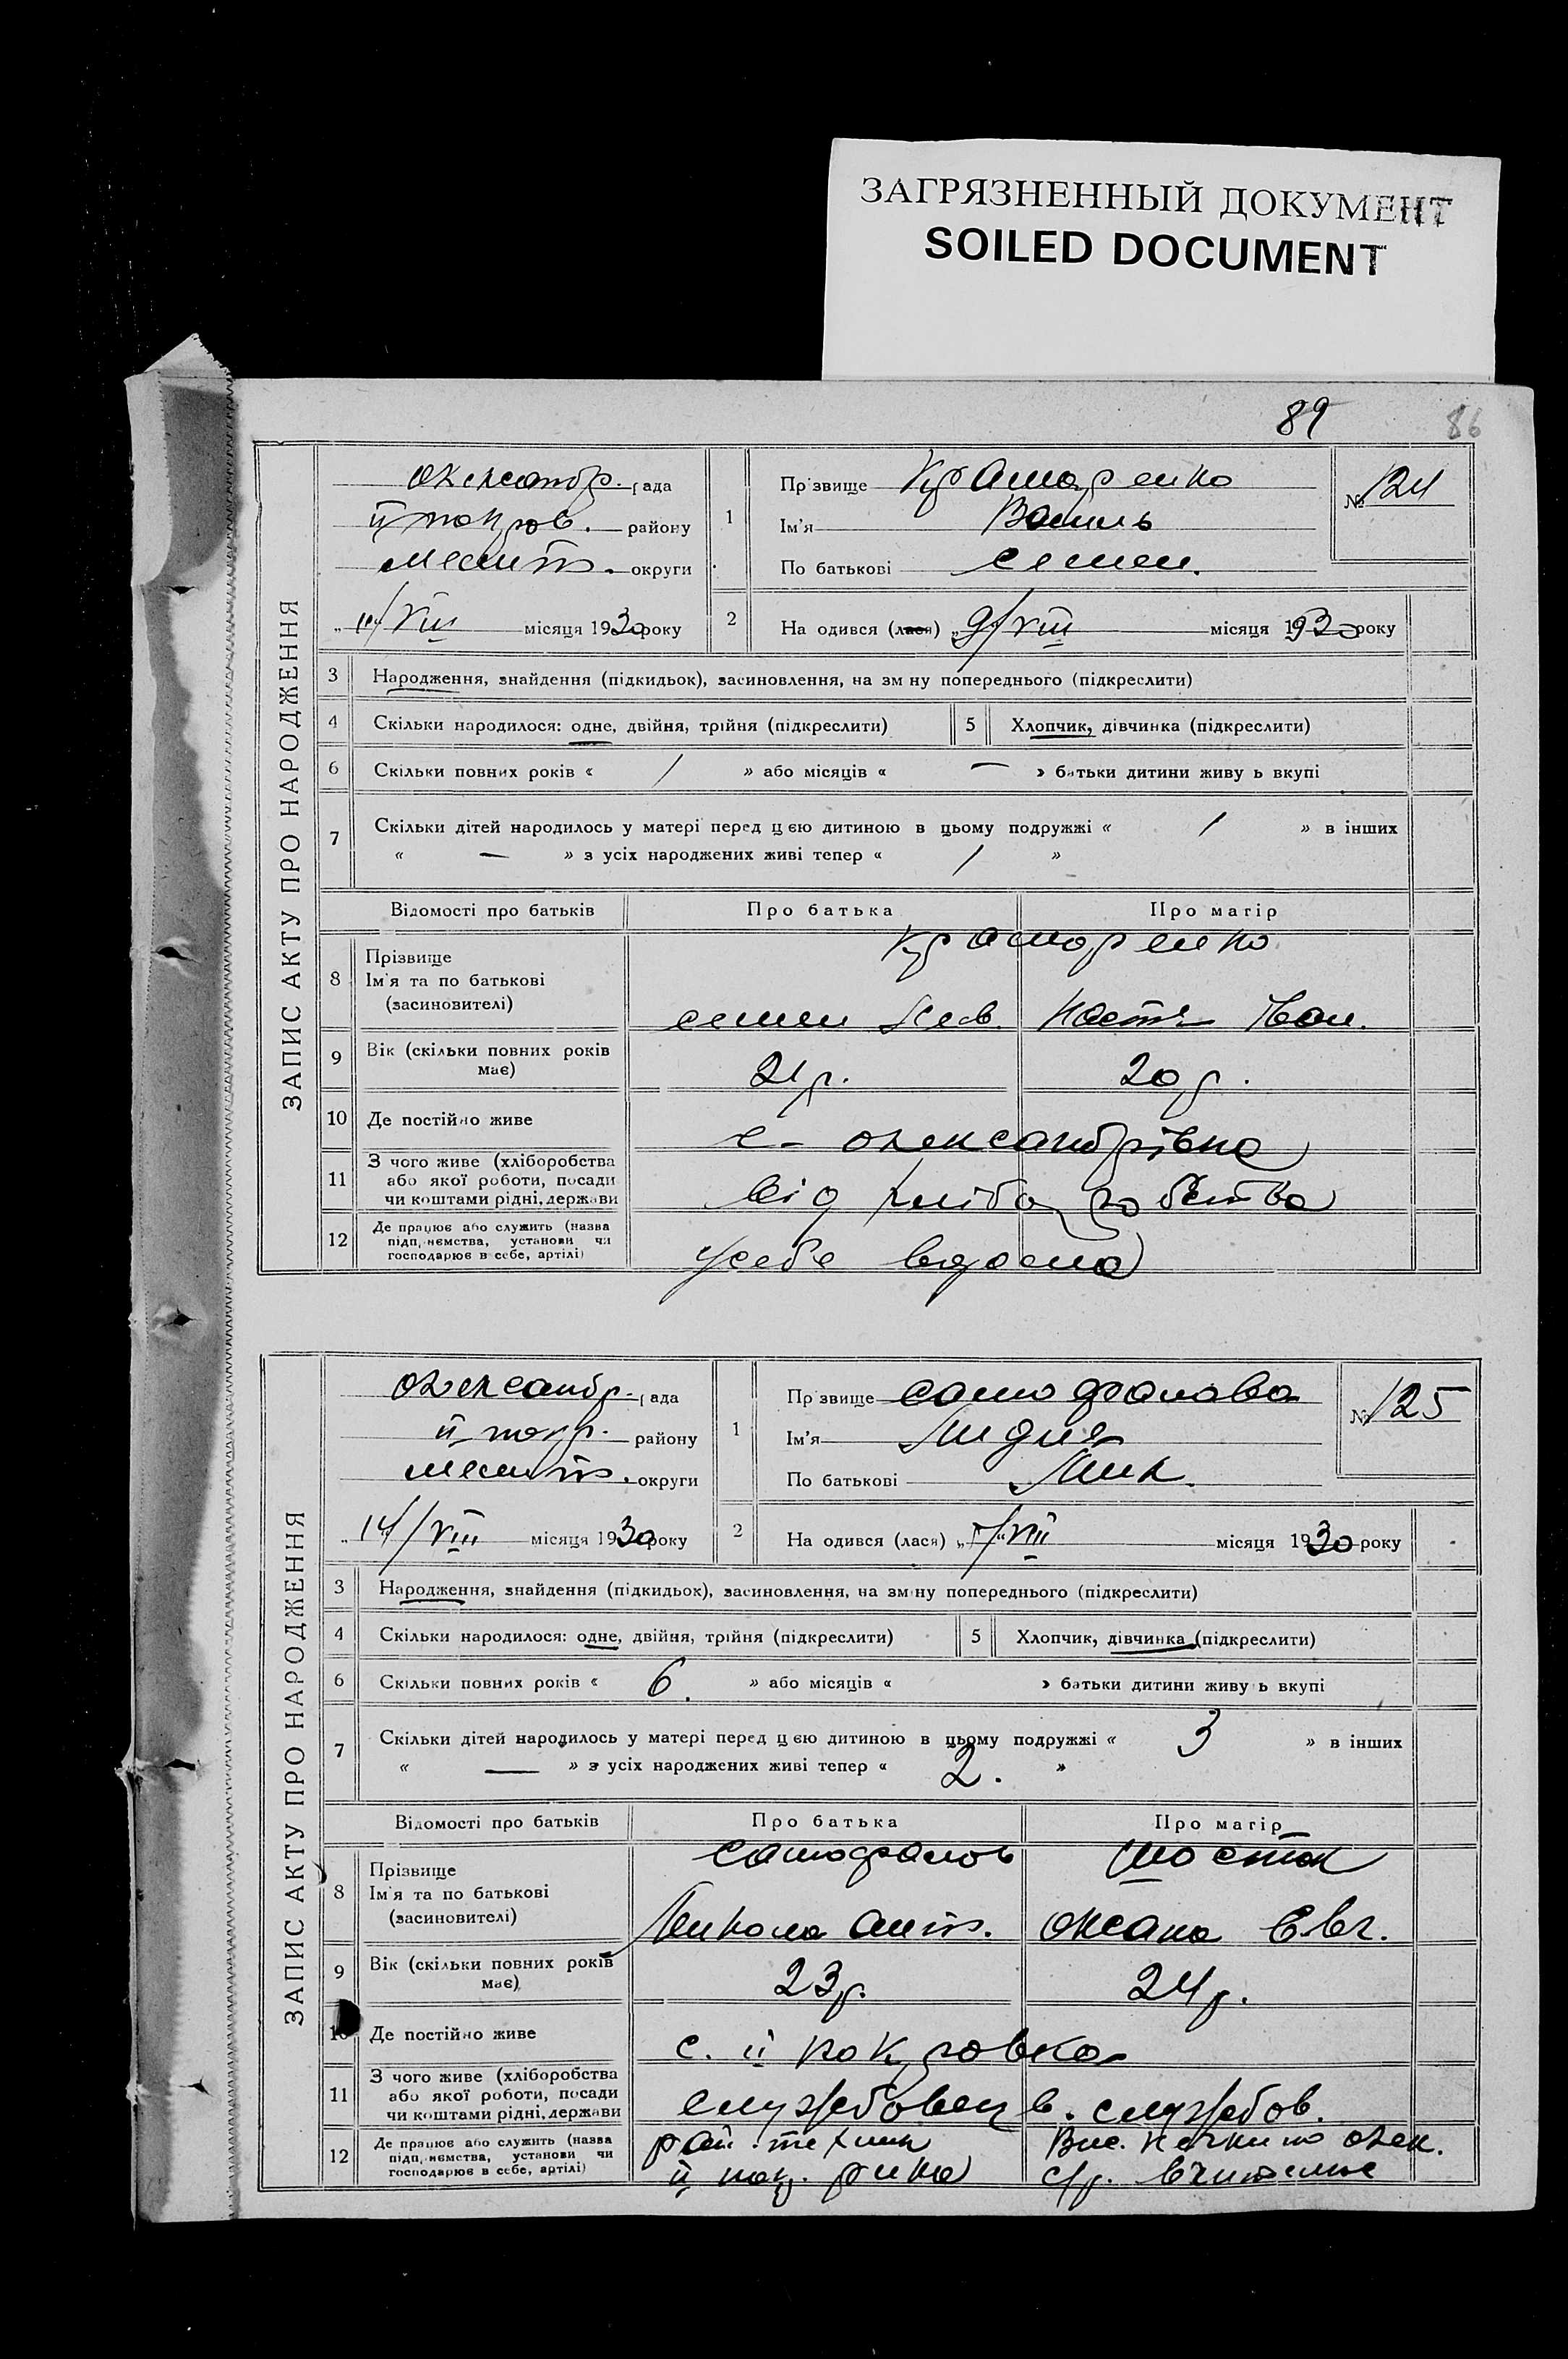 ЗАГРЯЗНЕННЫЙ ДОКУМЕНТ
SOILED DOCUMENT
89 86
ЗАПИС АКТУ ПРО НАРОДЖЕННЯ
Олександр. рада
ІІ покров. району
мелит. округи
11/VIII місяця 1930 року
1 Прізвище Крамаренко
Ім'я Василь
По батькові Семен.
№ 124
2 На одився (лася) „9/VIII місяця 1930 року
3 Народження, знайдення (підкидьок), засиновлення, на зм ну попереднього (підкреслити)
4 Скільки народилося: одне, двійня, трійня (підкреслити) 5 Хлопчик, дівчинка (підкреслити)
6 Скільки повних років « 1 » або місяців « — » батьки дитини живу ь вкупі
7 Скільки дітей народилось у матері перед цією дитиною в цьому подружжі « 1 » в інших
« — » з усіх народжених живі тепер « 1 »
Відомості про батьків Про батька Про матір
8 Прізвище
Ім'я та по батькові
(засиновителі)
Крамаренко
Семен Настя Іван.
9 Вік (скільки повних років має)
21 р. 20 р.
10 Де постійно живе с. Олександрівка
11 З чого живе (хліборобства
або якої роботи, посади
чи коштами рідні, держави
від хліборобства
12 Де працює або служить (назва
підп, иємства, установи чи
господарює в себе, артілі)
у себе вдома
ЗАПИС АКТУ ПРО НАРОДЖЕННЯ
Олександр. рада
ІІ покр. району
мелит. округи
„14/VIII місяця 1930 року
1 Пр звище Самофалова
Ім'я Лидия
По батькові Мик.
№ 125
2 На одився (лася) „7/VIII місяця 1930 року
3 Народження, знайдення (підкидьок), засиновлення, на зміну попереднього (підкреслити)
4 Скільки народилося: одне, двійня, трійня (підкреслити) 5 Хлопчик, дівчинка (підкреслити)
6 Скільки повних років « 6. » або місяців « » батьки дитини живу ь вкупі
7 Скільки дітей народилось у матері перед цією дитиною в цьому подружжі « 3 » в інших
« — » з усіх народжених живі тепер « 2. »
Відомості про батьків Про батька Про матір
8 Прізвище
Ім'я та по батькові
(засиновителі)
Самофалов Шостак
Микола Ант. Оксана Євг.
9 Вік (скільки повних років має)
23 р. 24 р.
10 Де постійно живе с. ІІ Покровка
11 З чого живе (хліборобства
або якої роботи, посади
чи коштами рідні, держави
службовець. службов.
12 Де працює або служить (назва
підп, иємства, установи чи
господарює в себе, артілі)
рай. технік
ІІ пок. рика
Олек.
с/р. вчителює